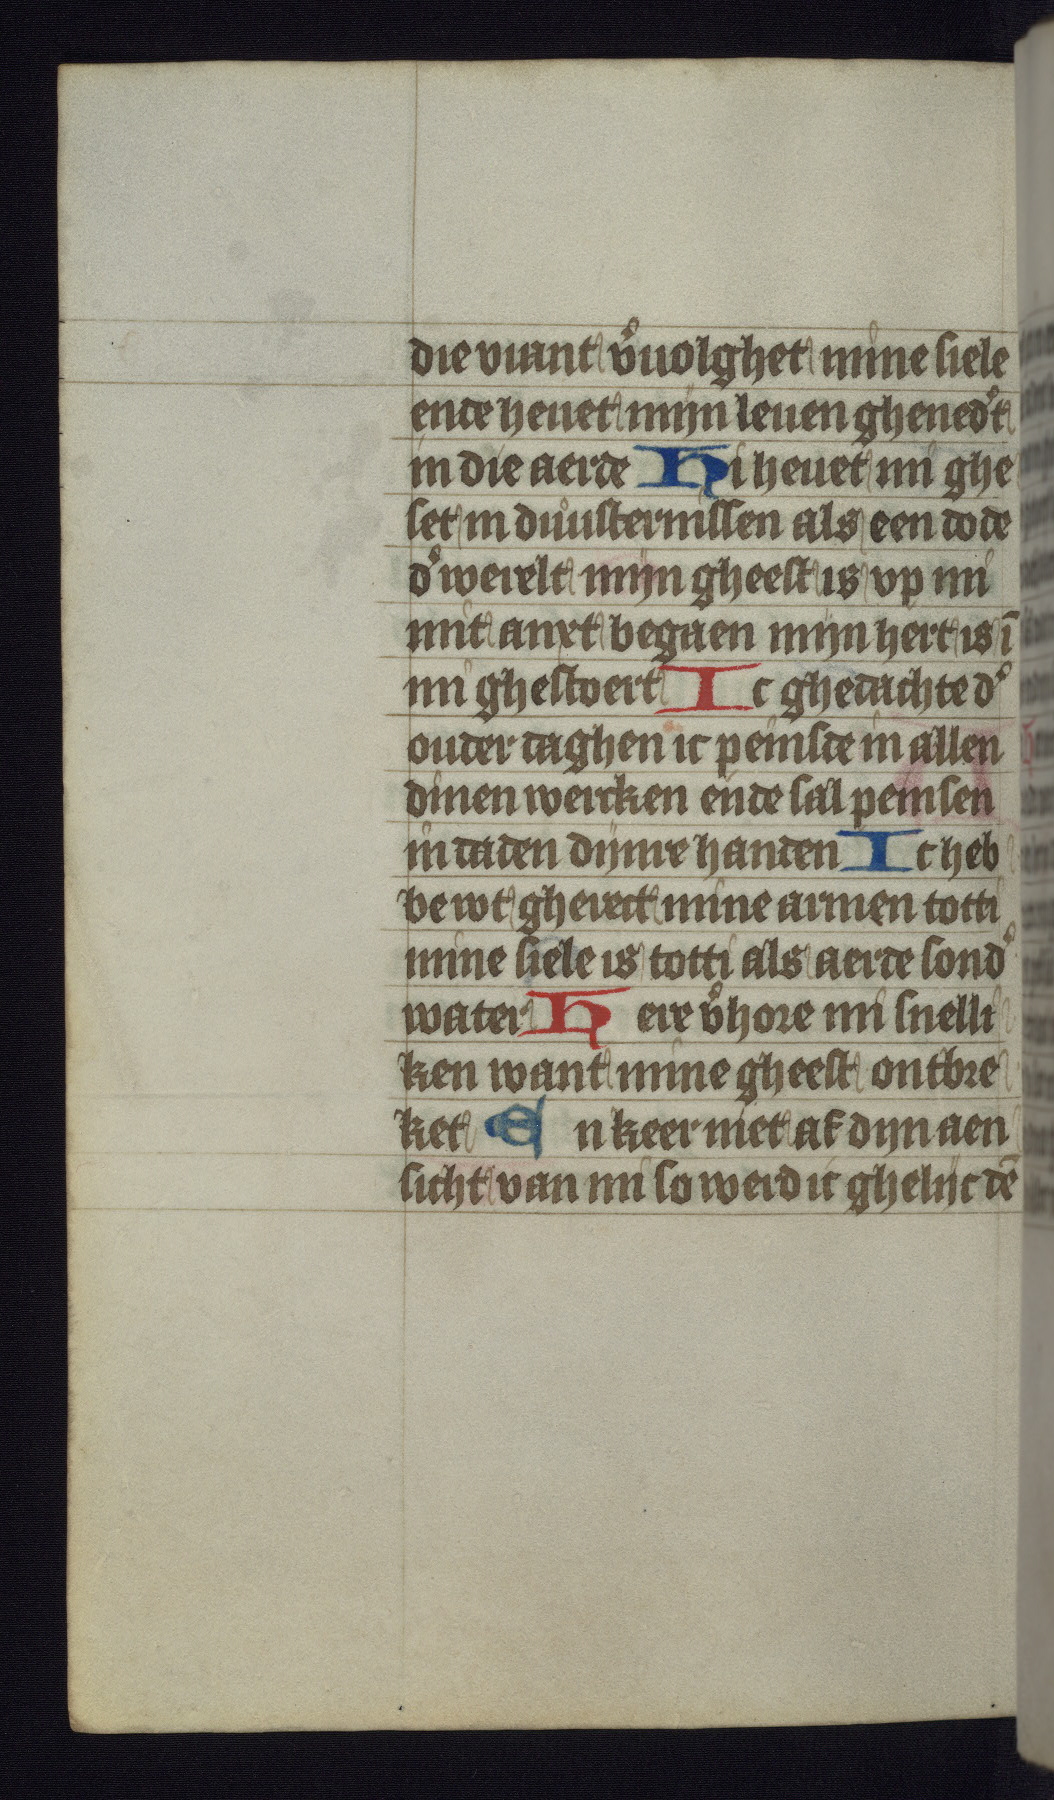 die viant v͛uolghet mine siele
ende heuet mijn leuen ghened͛t
in die aerde Hi heuet mi ghe
set in duusternissen als een dode
d͛ werelt mijn gheest is vp mi
mit anxt begaen mijn hert is ī
mi ghestoert Ic ghedachte d͛
ouder daghen ic peinsde in allen
dinen wercken ende sal peinsen
in daden dijnre handen Ic heb
be wt gherect mine armen totti
mine siele is totti als aerde sond͛
water Here v͛hore mi snelli
ken want mine gheest ontbre
ket En keer niet af dijn aen
sicht van mi so werd ic ghelijc dē